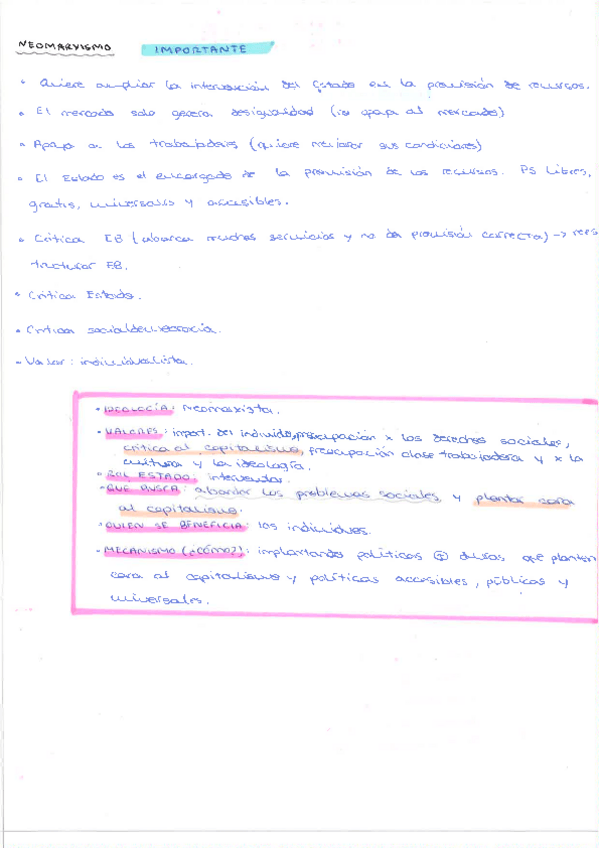 NEOMARXISMO IMPORTANTE
• Quiere ampliar la intervención del Estado en la provisión de recursos.
• El mercado solo genera desigualdad (no apoya al mercado)
• Apoya a los trabajadores (quiere mejorar sus condiciones)
• El Estado es el encargado de la provisión de los recursos. PS Libres,
gratis, universales y accesibles.
• Critica EB (abarca muchos servicios y no da provisión correcta) -> rees
tructurar EB.
• Critica Estado.
• Critica socialdemocracia.
• Valor: individualista.
• IDEOLOGÍA: Neomarxista.
• VALORES: import. del individuo, preocupación x los derechos sociales,
crítica al capitalismo, preocupación clase trabajadora y x la
cultura y la ideología.
• ROL ESTADO: interventor.
• QUE BUSCA: abordar los problemas sociales y plantar cara
al capitalismo.
• QUIEN SE BENEFICIA: los individuos.
• MECANISMO (¿CÓMO?): implantando políticas + duras que planten
cara al capitalismo y políticas accesibles, públicas y
universales.